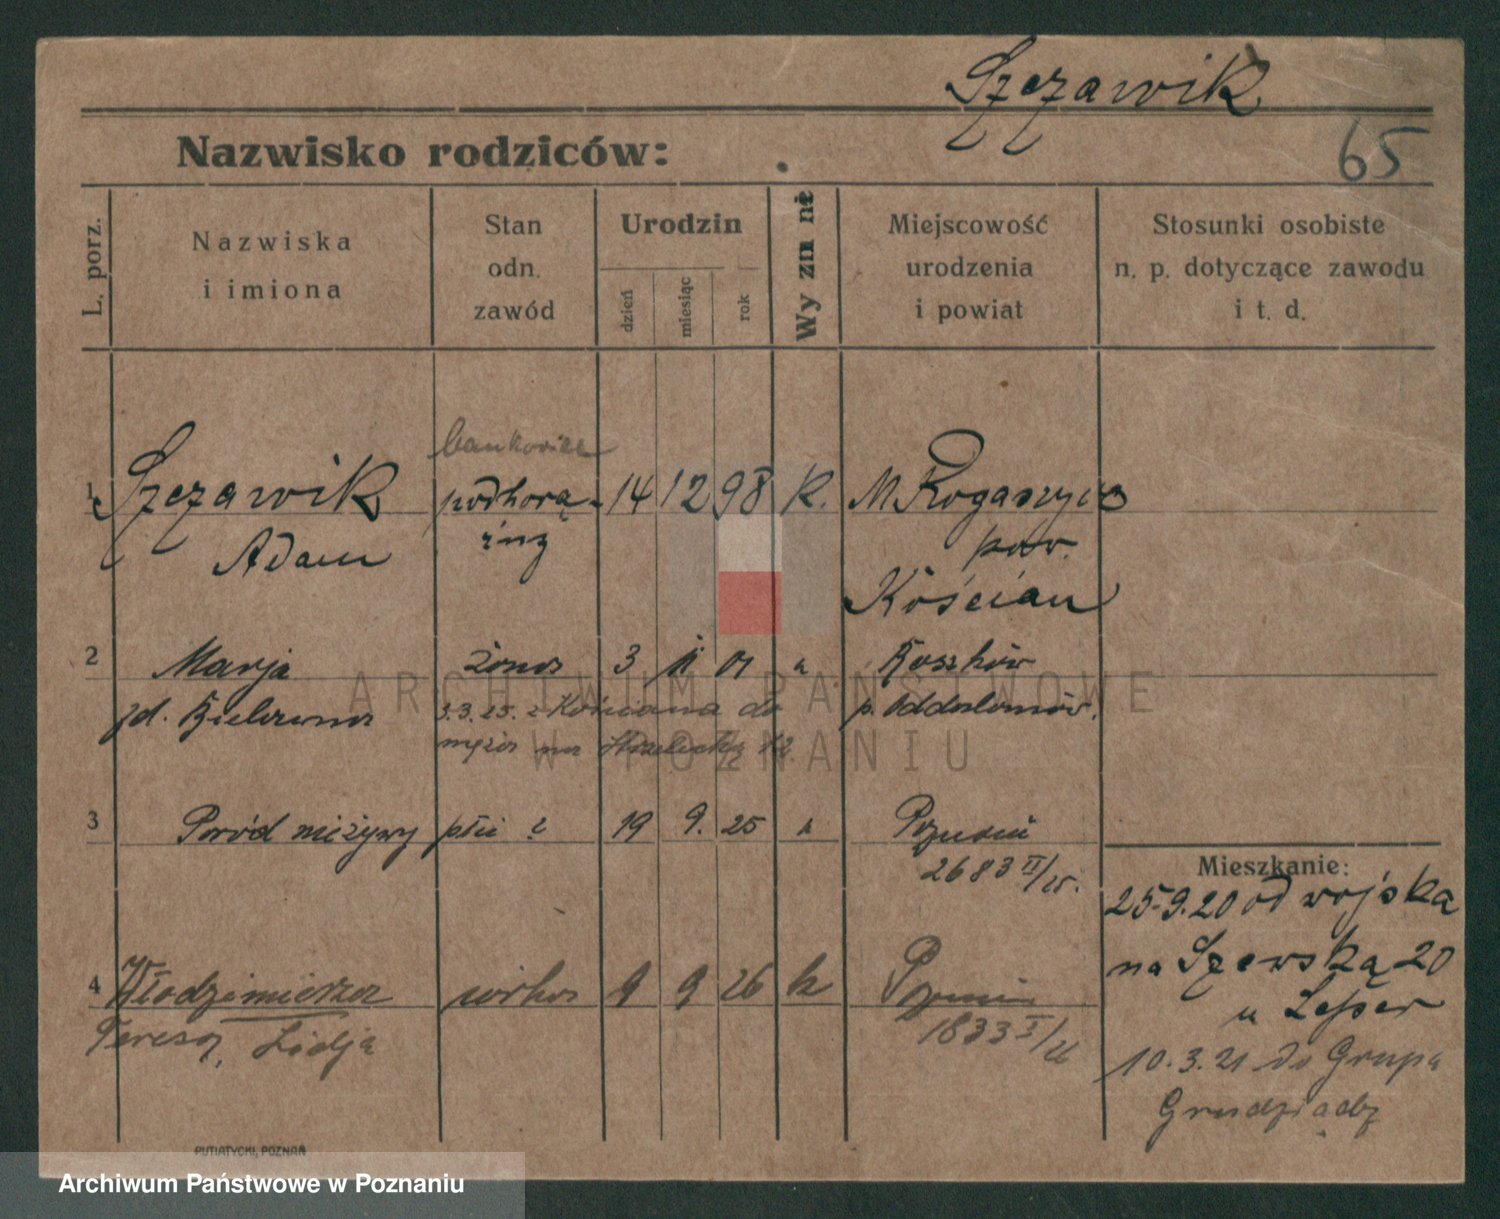 Szczawik
65
Nazwisko rodziców:
L. porz.
Nazwiska
i imiona
Stan
odn.
zawód
Urodzin
dzień
miesiąc
rok
Wyznnie
Miejscowość
urodzenia
i powiat
Stosunki osobiste
n. p. dotyczące zawodu
i t. d.
bankowiec
1 Szczawik podhorą- 14 12 98 k. M Rogaszyce
Adam żny pow.
Kościan
2 Marja żona 3 11 01 " Koszków
zd. Bielawna 3.3.25. z Kościana do p. Odolanów.
męża na Strzelecką
3 Poród nieżywy płci ż 19 9. 25 " Poznań
2683 II/25.
Mieszkanie:
25.9.20 od wojska
na Szewską 20
u Lesser
10.3.21 do Grupa
Grudziądz
4 Włodzimierza córka 9 9 26 k Poznań
Teresa, Lidja 1833 I/26
PUTIATYCKI, POZNAŃ
ARCHIWUM PAŃSTWOWE
W POZNANIU
Archiwum Państwowe w Poznaniu